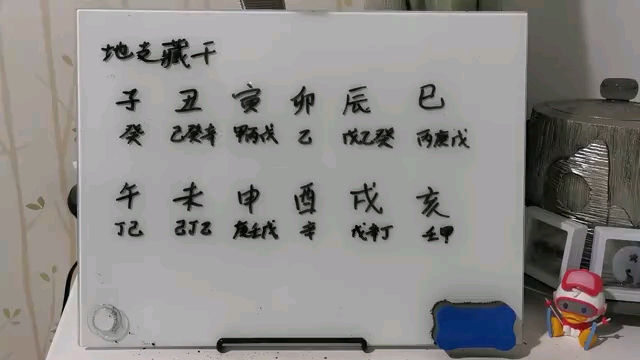 地支藏干
子 丑 寅 卯 辰 巳
癸 己癸辛 甲丙戊 乙 戊乙癸 丙庚戊
午 未 申 酉 戌 亥
丁己 己丁乙 庚壬戊 辛 戊辛丁 壬甲